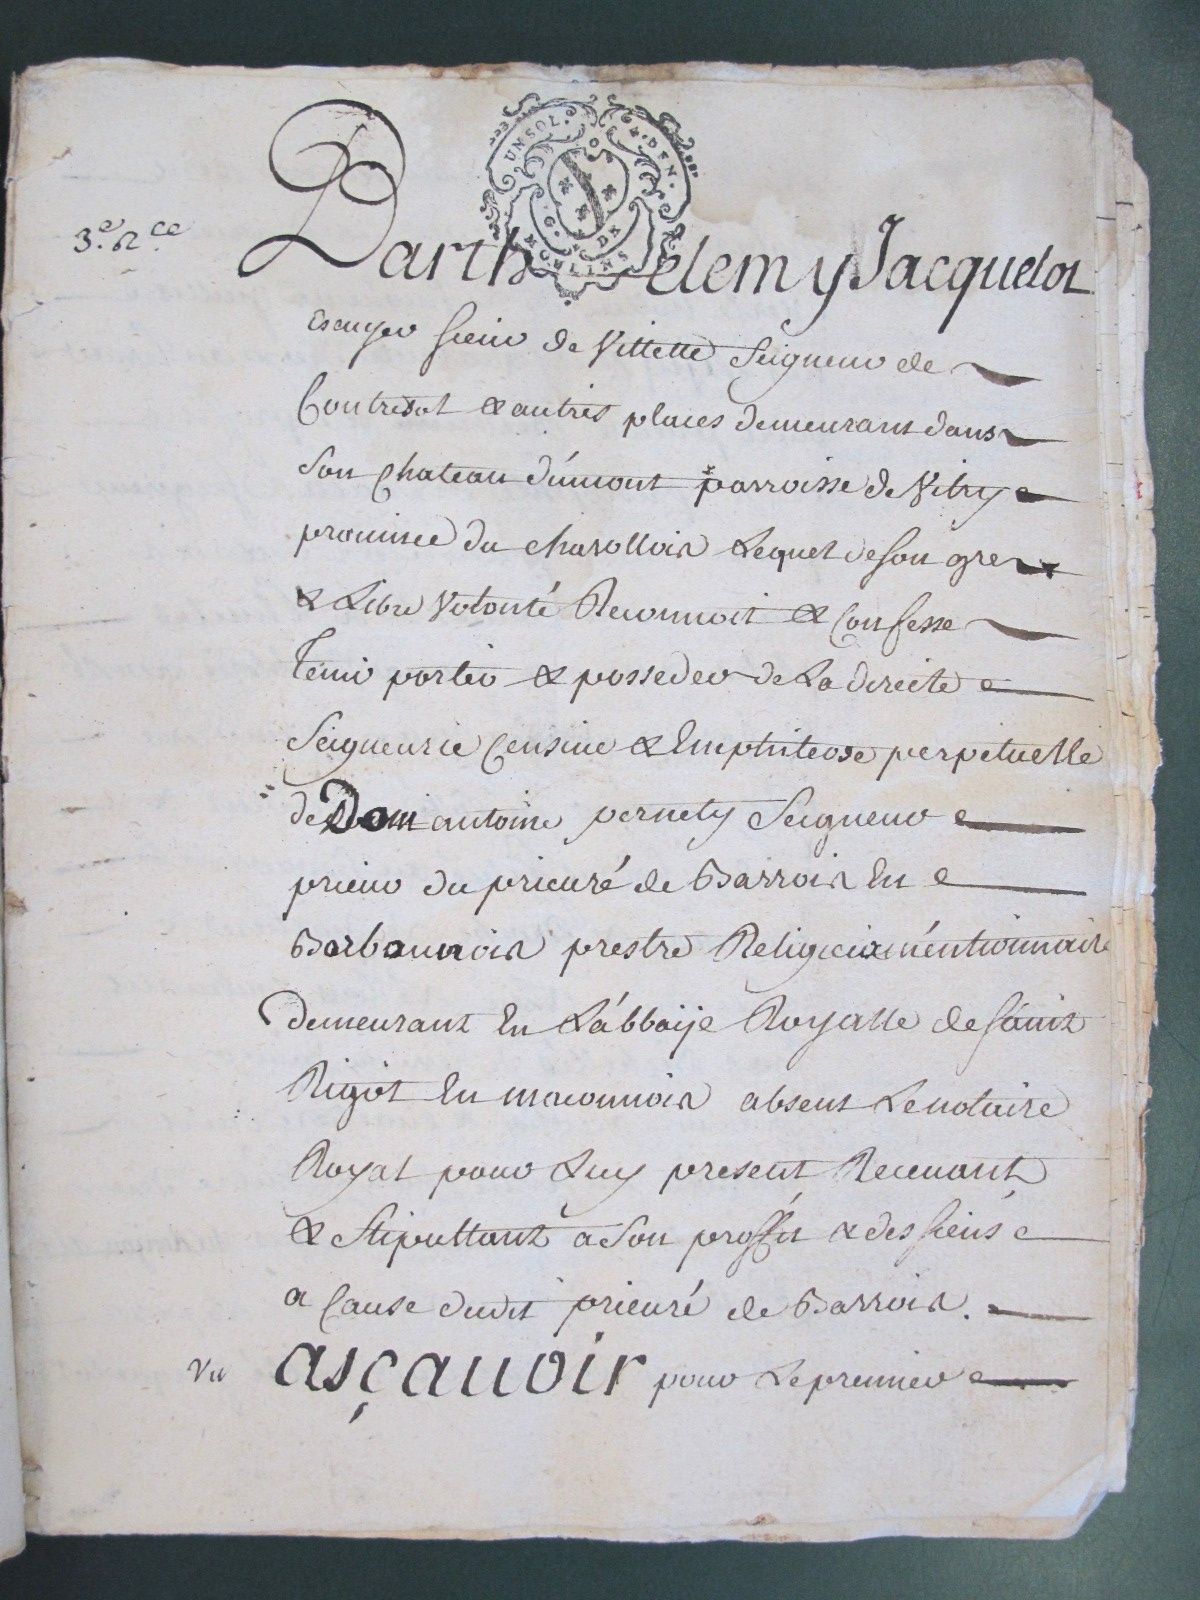 UN SOL. 4. DEN.
G. DE
MOULINS
3.e R.ce
Barthelemy Jacquelot
Escuyer sieur de Villette Seigneur de
Contresol & autres places demeurant dans
son chateau dumont parroisse de Vitry
prouince du charollois Lequel de son gre
& Libre Volonté Reconnoit & Confesse
Tenir porter & posseder de La directe
Seigneurie Censiue & Emphiteose perpetuelle
de Dom antoine pernety Seigneur
prieur du prieuré de Barrois En
Borbonnois prestre Religieux
demeurant En L'abbaije Royalle de saint
Rigot En maconnois absent Le notaire
Royal pour Luy present Receuant
& Stipullant a Son proffit & des siens
a Cause dudit prieuré de Barrois.
Vu asçauoir pour Le premier